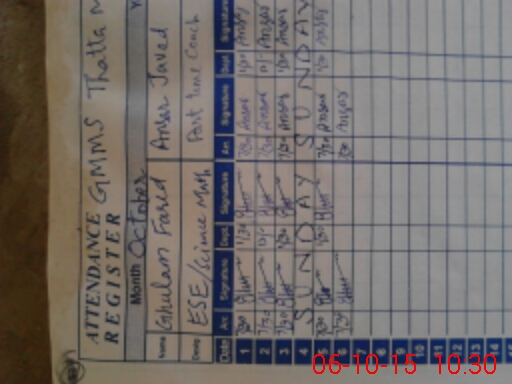 ATTENDANCE REGISTER GMMMS Thatta M
Month October Y
Name Ghulam Fared Anser Javed
Desig ESE/Science Math Part time Coach
Date Arr. Signature Dept. Signature Arr. Signature Dept. Signature
1 7/30 1/30 7/30 Anser 1/30 Anser
2 7/30 7/30 Anser Anser
3 7/30 1/30 7/30 Anser 1/30 Anser
4 SUNDAY SUNDAY
5 7/30 1/30 7/30 Anser 1/30 Anser
6 7/30 7/30 Anser
7
8
9
10
11
12
13
14
15
06-10-15 10:30